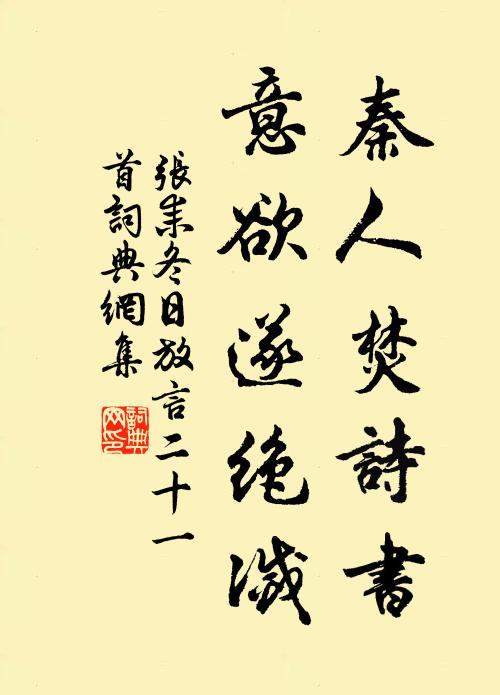 秦人焚詩書
意欲遂絶滅
張耒冬日放言二十一
首詞典網集
詞典
网印